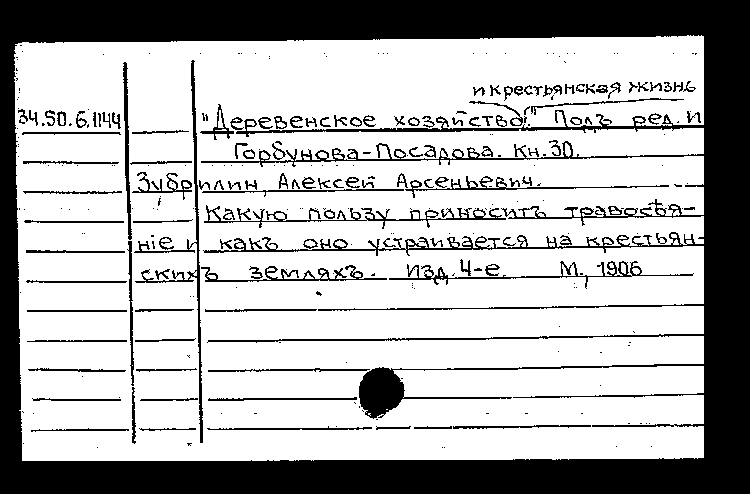 и крестьянская жизнь
34.SO.6.1144 "Деревенское хозяйство." Подъ ред. И
Горбунова-Посадова. Кн. 30.
Зубрилин, Алексей Арсеньевич.
Какую пользу приноситъ травосѣя-
ніе и какъ оно устраивается на крестьян-
скихъ земляхъ. Изд. 4-е. М., 1906